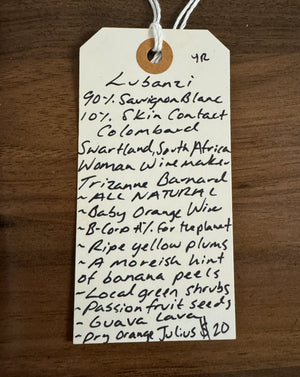 YR
Lubanzi
90% Sauvignon Blanc
10% Skin Contact
Colombard
Swartland, South Africa
Woman Winemaker
Trizanne Barnard
~ALL NATURAL
~Baby Orange Wine
~B-Corp +1% for the planet
~Ripe yellow plums
~A moreish hint
of banana peels
~Local green shrubs
~Passionfruit seeds
~Guava Lava
~Dry Orange Julius $20